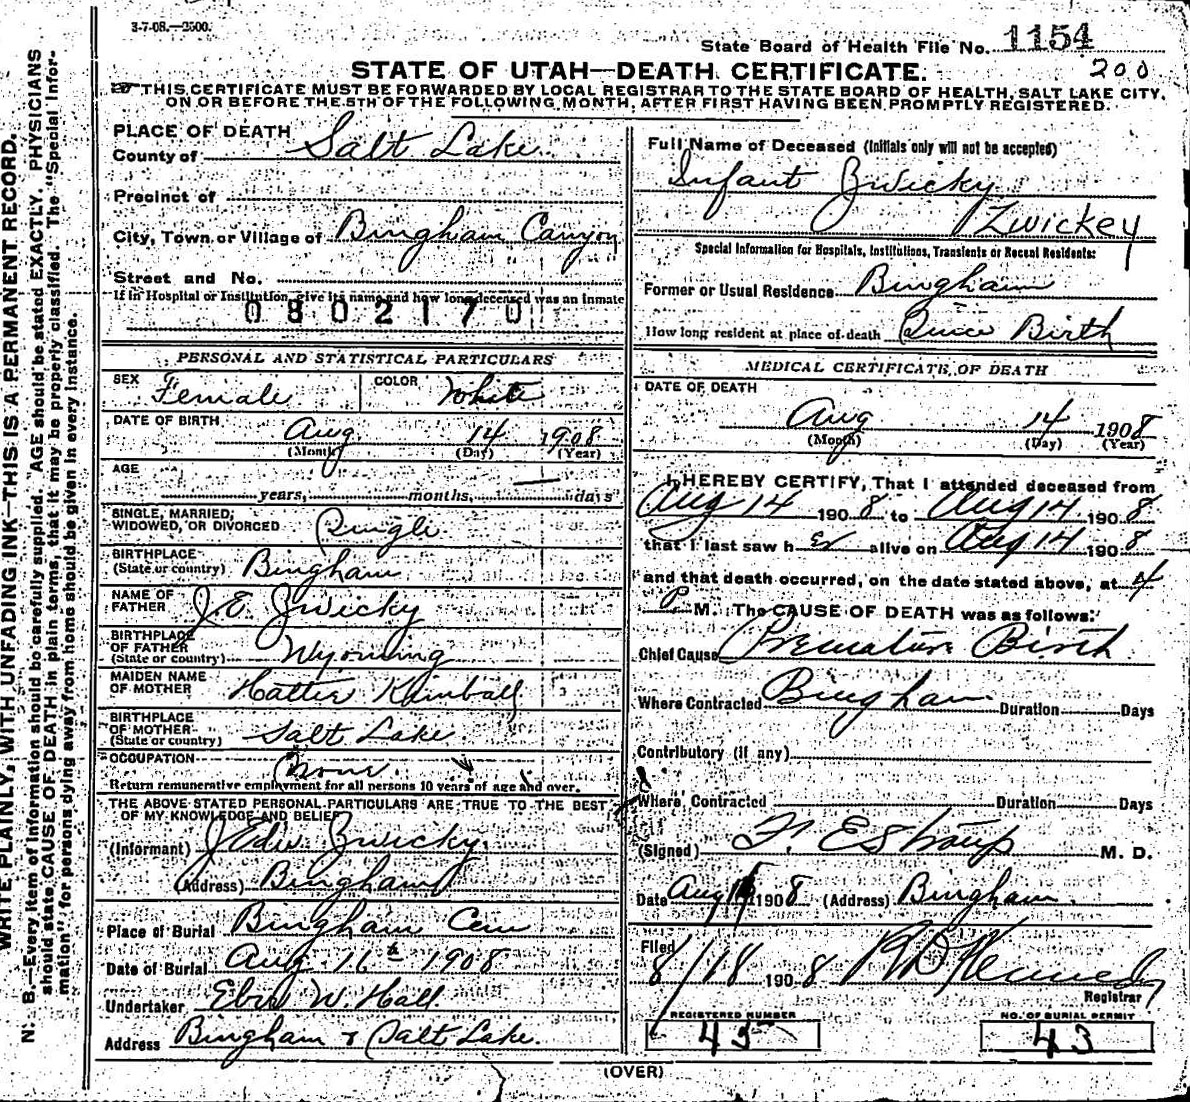 3-7-08.—2500.
State Board of Health File No. 1154
STATE OF UTAH—DEATH CERTIFICATE.
200
THIS CERTIFICATE MUST BE FORWARDED BY LOCAL REGISTRAR TO THE STATE BOARD OF HEALTH, SALT LAKE CITY,
ON OR BEFORE THE 5TH OF THE FOLLOWING MONTH, AFTER FIRST HAVING BEEN PROMPTLY REGISTERED.
WRITE PLAINLY, WITH UNFADING INK—THIS IS A PERMANENT RECORD.
N. B.—Every item of information should be carefully supplied. AGE should be stated EXACTLY. PHYSICIANS
should state CAUSE OF DEATH in plain terms, that it may be properly classified. The "Special Infor-
mation" for persons dying away from home should be given in every instance.
PLACE OF DEATH
County of Salt Lake
Precinct of
City, Town or Village of Bingham Canyon
Street and No.
If in Hospital or Institution, give its name and how long deceased was an inmate
0802170
PERSONAL AND STATISTICAL PARTICULARS
SEX Female COLOR White
DATE OF BIRTH Aug. 14 1908
(Month) (Day) (Year)
AGE
years, months, — days
SINGLE, MARRIED,
WIDOWED, OR DIVORCED Single
BIRTHPLACE
(State or country) Bingham
NAME OF
FATHER J. E. Zwicky
BIRTHPLACE
OF FATHER
(State or country) Wyoming
MAIDEN NAME
OF MOTHER Hattie Kimball
BIRTHPLACE
OF MOTHER
(State or country) Salt Lake
OCCUPATION None.
Return remunerative employment for all persons 10 years of age and over.
THE ABOVE STATED PERSONAL PARTICULARS ARE TRUE TO THE BEST
OF MY KNOWLEDGE AND BELIEF
(Informant) J Edw Zwicky.
(Address) Bingham
Place of Burial Bingham Cem
Date of Burial Aug 16th 1908
Undertaker Eber W. Hall.
Address Bingham & Salt Lake.
Full Name of Deceased (Initials only will not be accepted)
Infant Zwicky
Zwickey
Special Information for Hospitals, Institutions, Transients or Recent Residents:
Former or Usual Residence Bingham
How long resident at place of death Since Birth
MEDICAL CERTIFICATE OF DEATH
DATE OF DEATH
Aug 14 1908
(Month) (Day) (Year)
I HEREBY CERTIFY, That I attended deceased from
Aug 14 1908 to Aug 14 1908
that I last saw her alive on Aug 14 1908
and that death occurred, on the date stated above, at 4
P. M. The CAUSE OF DEATH was as follows:
Chief Cause Premature Birth
Where Contracted Bingham Duration Days
Contributory (if any)
Where Contracted Duration Days
(Signed) F. E Straup M. D.
Date Aug 1908 (Address) Bingham.
Filed
8/18 1908 Kennedy
Registrar
REGISTERED NUMBER
45
NO. OF BURIAL PERMIT
43
(OVER)